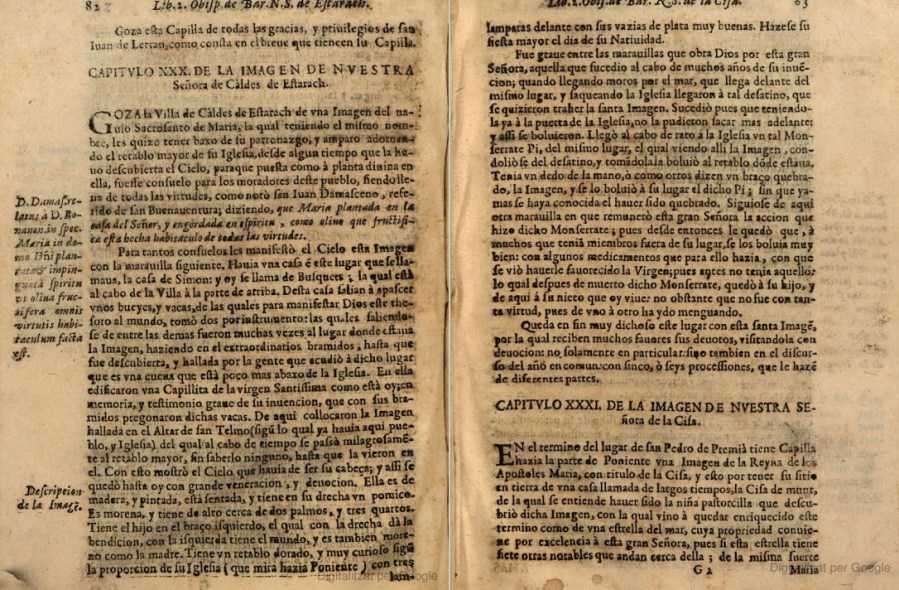 82 Lib.2. Obisp. de Bar. N.S. de Estarach.
Goza esta Capilla de todas las gracias, y priuilegios de san
Iuan de Letran, como consta en el breue que tienē en su Capilla.
CAPITVLO XXX. DE LA IMAGEN DE NVESTRA
Señora de Càldes de Estarach.
GOZA la Villa de Càldes de Estarach de vna Imagen del na-
do Sacrosanto de Maria, la qual teniendo el mismo nom-
bre, les quizo tener baxo de su patronazgo, y amparo adornan-
do el retablo mayor de su Iglesia, desde algun tiempo que la hu-
uo descubierta el Cielo, paraque puesta como à planta diuina en
ella, fuesse consuelo para los moradores deste pueblo, siendo lle-
na de todas las virtudes, como notò san Iuan Damasceno, refe-
rido de san Buenauentura; diziendo, que Maria plantada en la
casa del Señor, y engordada en espiritu, como oliuo que fructifi-
ca està hecha habitaculo de todas las virtudes.
Para tantos consuelos les manifestò el Cielo esta Imagen
con la marauilla siguiente. Hauia vna casa ē este lugar que se lla-
maua, la casa de Simon: y oy se llama de Busquets; la qual està
al cabo de la Villa à la parte de arriba. Desta casa salian à apascer
vnos bueyes, y vacas, de las quales para manifestar Dios este the-
soro al mundo, tomò dos por instrumento: las quales saliendo-
se de entre las demas fueron muchas vezes al lugar donde estaua
la Imagen, haziendo en el extraordinarios bramidos, hasta que
fue descubierta, y hallada por la gente que acudiò à dicho lugar
que es vna cueua que està poco mas abaxo de la Iglesia. En ella
edificaron vna Capillita de la virgen Santissima como està oy; en
memoria, y testimonio graue de su inuencion, que con sus bra-
midos pregonaron dichas vacas. De aqui collocaron la Imagen
hallada en el Altar de san Telmo (sigū lo qual ya hauia aqui pue-
blo, y Iglesia) del qual al cabo de tiempo se passò milagrosamē-
te al retablo mayor, sin saberlo ninguno, hasta que la vieron en
el. Con esto mostrò el Cielo que hauia de ser su cabeça; y assi se
quedò hasta oy con grande veneracion, y deuocion. Ella es de
madera, y pintada, està sentada, y tiene en su drecha vn pomico.
Es morena, y tiene de alto cerca de dos palmos, y tres quartos.
Tiene el hijo en el braço isquierdo, el qual con la drecha dà la
bendicion, con la isquierda tiene el mundo, y es tambien more-
no como la madre. Tiene vn retablo dorado, y muy curioso sigū
la proporcion de su Iglesia (que mira hazia Poniente) con tres
lam-
D. Damasc. re-
latus à D. Bo-
nauen. in spec.
Maria in do-
mo Dñi plan-
tata & impin-
guata spiritu
vt oliua fruc-
tifera omnis
virtutis habi-
taculum facta
est.
Description
de la Imagē.
Lib.2. Obisp. de Bar. N.S. de la Cisa. 83
lamparas delante con sus vazias de plata muy buenas. Hazese su
fiesta mayor el dia de su Natiuidad.
Fue graue entre las marauillas que obra Dios por esta gran
Señora, aquella que sucediò al cabo de muchos años de su inuē-
cion; quando llegando moros por el mar, que llega delante del
mismo lugar, y saqueando la Iglesia llegaron à tal desatino, que
se quizieron traher la santa Imagen. Sucediò pues que teniendo-
la ya à la puerta de la Iglesia, no la pudieron sacar mas adelante:
y assi se boluieron. Llegò al cabo de rato à la Iglesia vn tal Mon-
serrate Pi, del mismo lugar, el qual viendo alli la Imagen, con-
doliòse del desatino, y tomādola la boluiò al retablo dōde estaua.
Tenia vn dedo de la mano, ò como otros dizen vn braço quebra-
do, la Imagen, y se lo boluiò à su lugar el dicho Pi; sin que ya-
mas se haya conocida el hauer sido quebrado. Siguiose de aqui
otra marauilla en que remunerò esta gran Señora la accion que
hizo dicho Monserrate; pues desde entonces le quedò que, à
muchos que teniā miembros fuera de su lugar, se los boluia muy
bien: con algunos medicamentos que para ello hazia, con que
se viò hauerle fauorecido la Virgen; pues antes no tenia aquello:
lo qual despues de muerto dicho Monserrate, quedò à su hijo, y
de aqui à su nieto que oy viue: no obstante que no fue con tan-
ta virtud, pues de vno à otro ha ydo menguando.
Queda en fin muy dichoso este lugar con esta santa Imagē,
por la qual reciben muchos fauores sus deuotos, visitandola con
deuocion: no solamente en particular: sino tambien en el discur-
so del año en comun: con sinco, ò seys processiones, que le hazē
de diferentes partes.
CAPITVLO XXXI. DE LA IMAGEN DE NVESTRA SE-
ñora de la Cisa.
EN el termino del lugar de san Pedro de Premià tiene Capilla
hazia la parte de Poniente vna Imagen de la Reyna de los
Apostoles Maria, con titulo de la Cisa, y esto por tener su sitio
en tierra de vna casa llamada de largos tiempos, la Cisa de munt,
de la qual se entiende hauer sido la niña pastorcilla que descu-
briò dicha Imagen, con la qual vino à quedar enriquecido este
termino como de vna estrella del mar, cuya propriedad conuie-
ne por excelencia à esta gran Señora, pues si esta estrella tiene
siete otras notables que andan cerca della; de la misma suerte
G 2 Maria
Digitalitzat per Google
Digitalitzat per Google